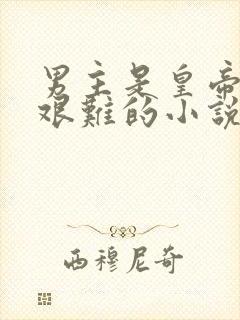 男主是皇帝
艰難的小說
西穆尼奇